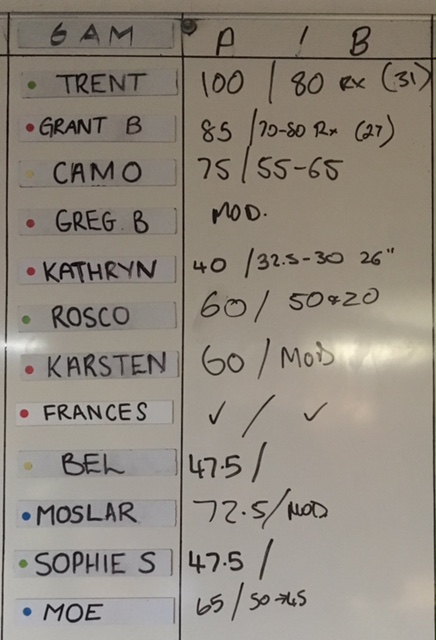 6 AM A / B
TRENT 100 / 80 Rx (31)
GRANT B 85 / 70-80 Rx (27)
CAMO 75 / 55-65
GREG. B MOD.
KATHRYN 40 / 32.5-30 26"
ROSCO 60 / 50&20
KARSTEN 60 / MOD
FRANCES ✓ / ✓
BEL 47.5 /
MOSLAR 72.5 / MOD
SOPHIE S 47.5 /
MOE 65 / 50→45